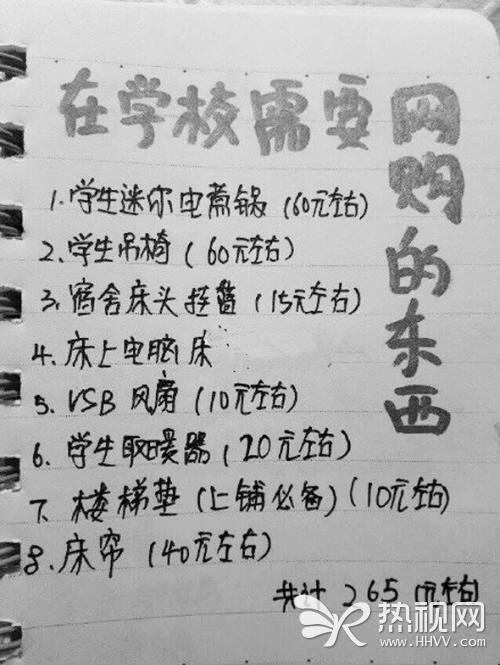 在学校需要网购的东西
1.学生迷你电煮锅(60元左右)
2.学生吊椅(60元左右)
3.宿舍床头挂篮(15元左右)
4.床上电脑床
5.USB风扇(10元左右)
6.学生取暖器(20元左右)
7.楼梯垫(上铺必备)(10元左右)
8.床帘(40元左右)
共计265元左右
热视网
www.HHVV.com